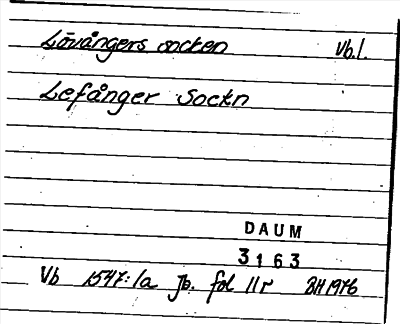 Lövångers socken Vb.l.
Lefånger Sockn
DAUM
3163
Vb 1547:1a Jb. fol 11r BH 1976